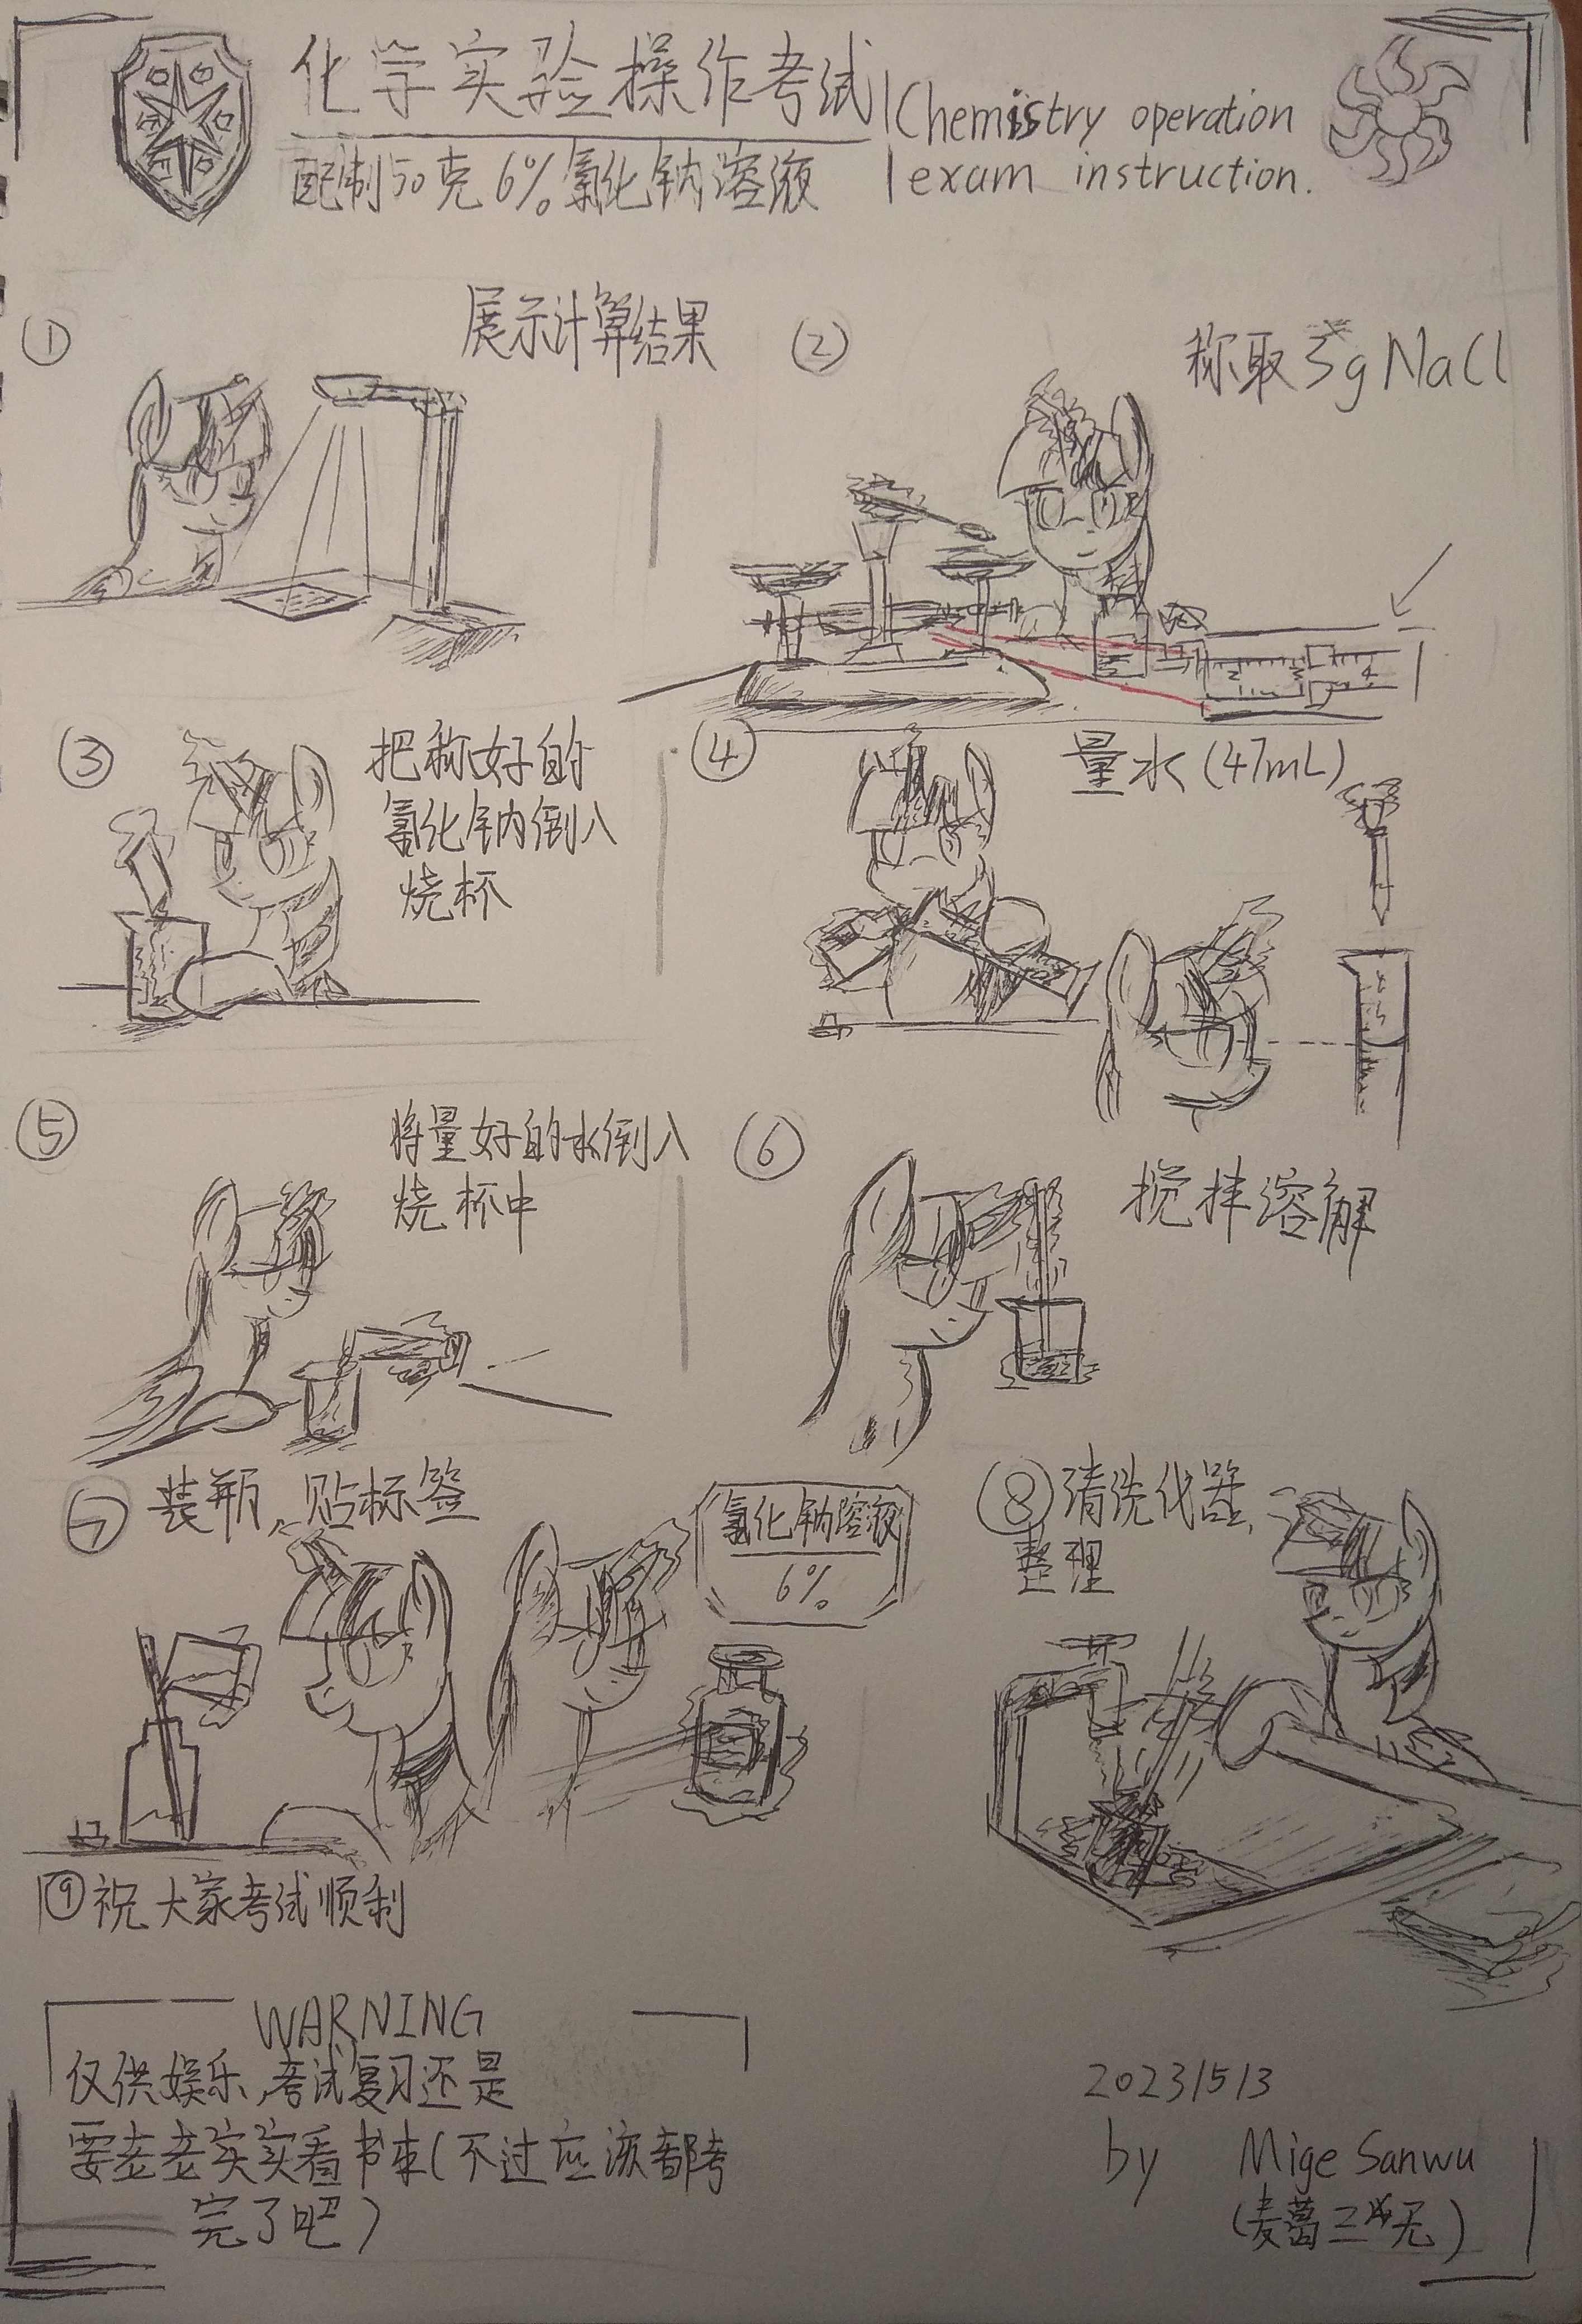 化学实验操作考试
配制50克6%氯化钠溶液
Chemistry operation
exam instruction.
①
展示计算结果
②
称取3g NaCl
2 3 4
③
把称好的
氯化钠倒入
烧杯
④
量水(47mL)
⑤
将量好的水倒入
烧杯中
⑥
搅拌溶解
⑦ 装瓶,贴标签
氯化钠溶液
6%
⑧清洗仪器,
整理
⑨祝大家考试顺利
WARNING
仅供娱乐,考试复习还是
要老老实实看书本(不过应该都考
完了吧)
2023/5/3
by Mige Sanwu